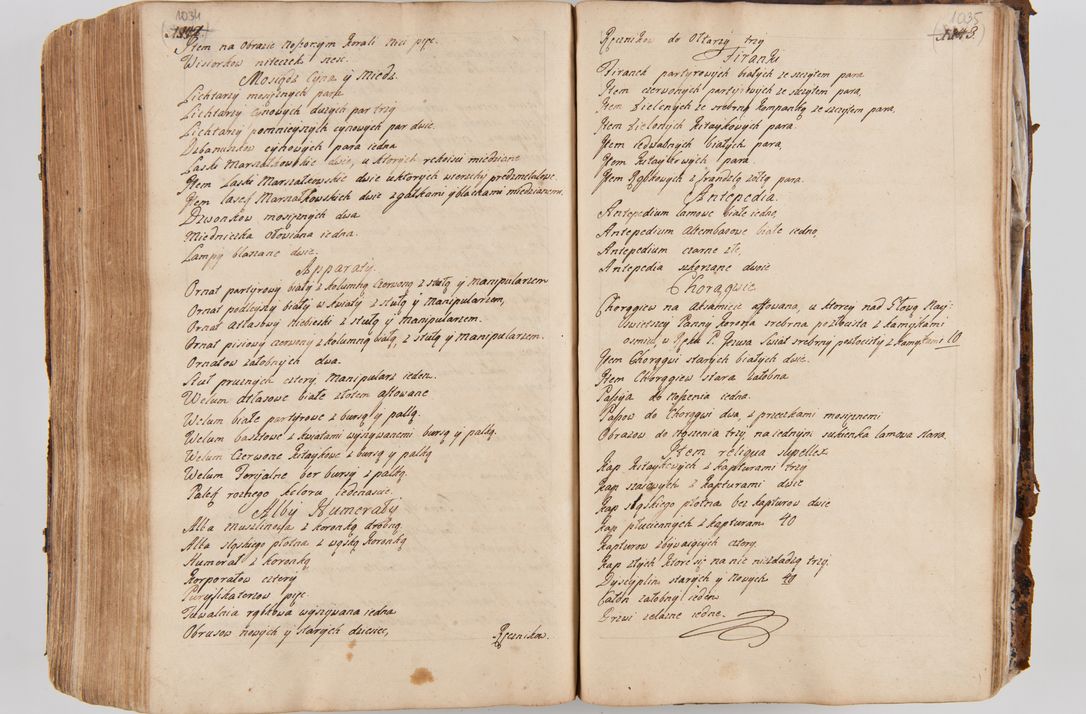 1034
Item na Obrazie Noszonym Korali Nici pięc.
Wisiorkow niteczek szesc.
Mosiądz Cyna y Miedz.
Lichtarzy mosiężnych para
Lichtarzy Cynowych duzych par trzy
Lichtarzy pomnieyszych cynowych par dwie.
Dzbanuszkow cynowych para iedna
Laski Marszałkowskie dwie, u ktorych rękoiesci miedziane
Item Laski Marszałewskie dwie u ktorych wierzchy
Item Lasek Marszałkowskich dwie z gałkami y blachami miedzianemi
Dzwonkow mosiężnych dwa
Miedniczka Ołowiana iedna.
Lampy blaszane dwie.
Apparaty.
Ornat partyrowy biały z kolumną Czerwoną z stułą y manipularzem
Ornat podleyszy biały w kwiaty z stułą y Manipularzem,
Ornat Atłasowy Niebieski z stułą y Manipularzem.
Ornat pisiowy czerwony z kolumną białą, z stułą y manipularzem.
Ornatow załobnych dwa.
Stuł pruznych cztery, Manipularz ieden.
Welum Atłasowe białe złotem aftowane
Welum białe partyrowe z bursą y pallą.
Welum basztowe z kwiatami wyszywanemi bursą y pallą.
Welum Czerwone Kitaykowe z bursą y pallą
Welum Teryalne bez bursy z pallą
Palek roznego koloru iedenascie.
Alby Humerały
Alba muszlinowa z koronką drobną
Alba sląskiego płotna z wąską Koronką
Humerał z koronką
Korporałow cztery
Puryfikaterzow pięc.
Tuwalnia rąbkowa wyszywana iedna
Obrusow nowych y starych dziesiec,
Ręcznikow.
1035
Ręcznikow do Ołtarzy trzy
Firanki
Firanek partyrowych białych ze szczytem para
Item czerwonych partyrowych ze szczytem para,
Item Zielonych ze srebrną Kompanką ze szczytem para,
Item Zielonych Kitaykowych para.
Item iedwabnych białych para,
Item Kitaykowych para
Item Rąbkowych z frandzlą zółtą para.
Antepedia.
Antepedium lamowe białe iedno,
Antepedium Altembasowe białe iedno,
Antepedium czarne złe,
Antepedia skorzane dwoie
Chorągwie
Chorągiew na Axamicie aftowana, u ktorey nad Głową Nay:
swietszey Panny korona srebrna pozłocista z kamykami
osmią, w Ręku P. Jezusa swiat srebrny pozłocisty z kamykami 10
Item Chorągwi starych białych dwie.
Item Chorągiew stara załobna
Passyia do noszenia iedna.
Passow do Chorągwi dwa z przeczkami mosiężnemi
Obrazow do Noszenia trzy, na iednym sukienka lamowa stara.
Item reliqua supellex
Kap Kitaykowych z kapturami trzy
Kap szaiowych z kapturami dwie
Kap sląskiego płotna bez kapturow dwie
Kap płuciennych z kapturami 40
Kapturow zbywaiących cztery,
Kap złych ktore się na nic niezdadzą trzy.
Dyscyplin starych y nowych 40
Całon załobny ieden
Drzwi zelazne iedne.